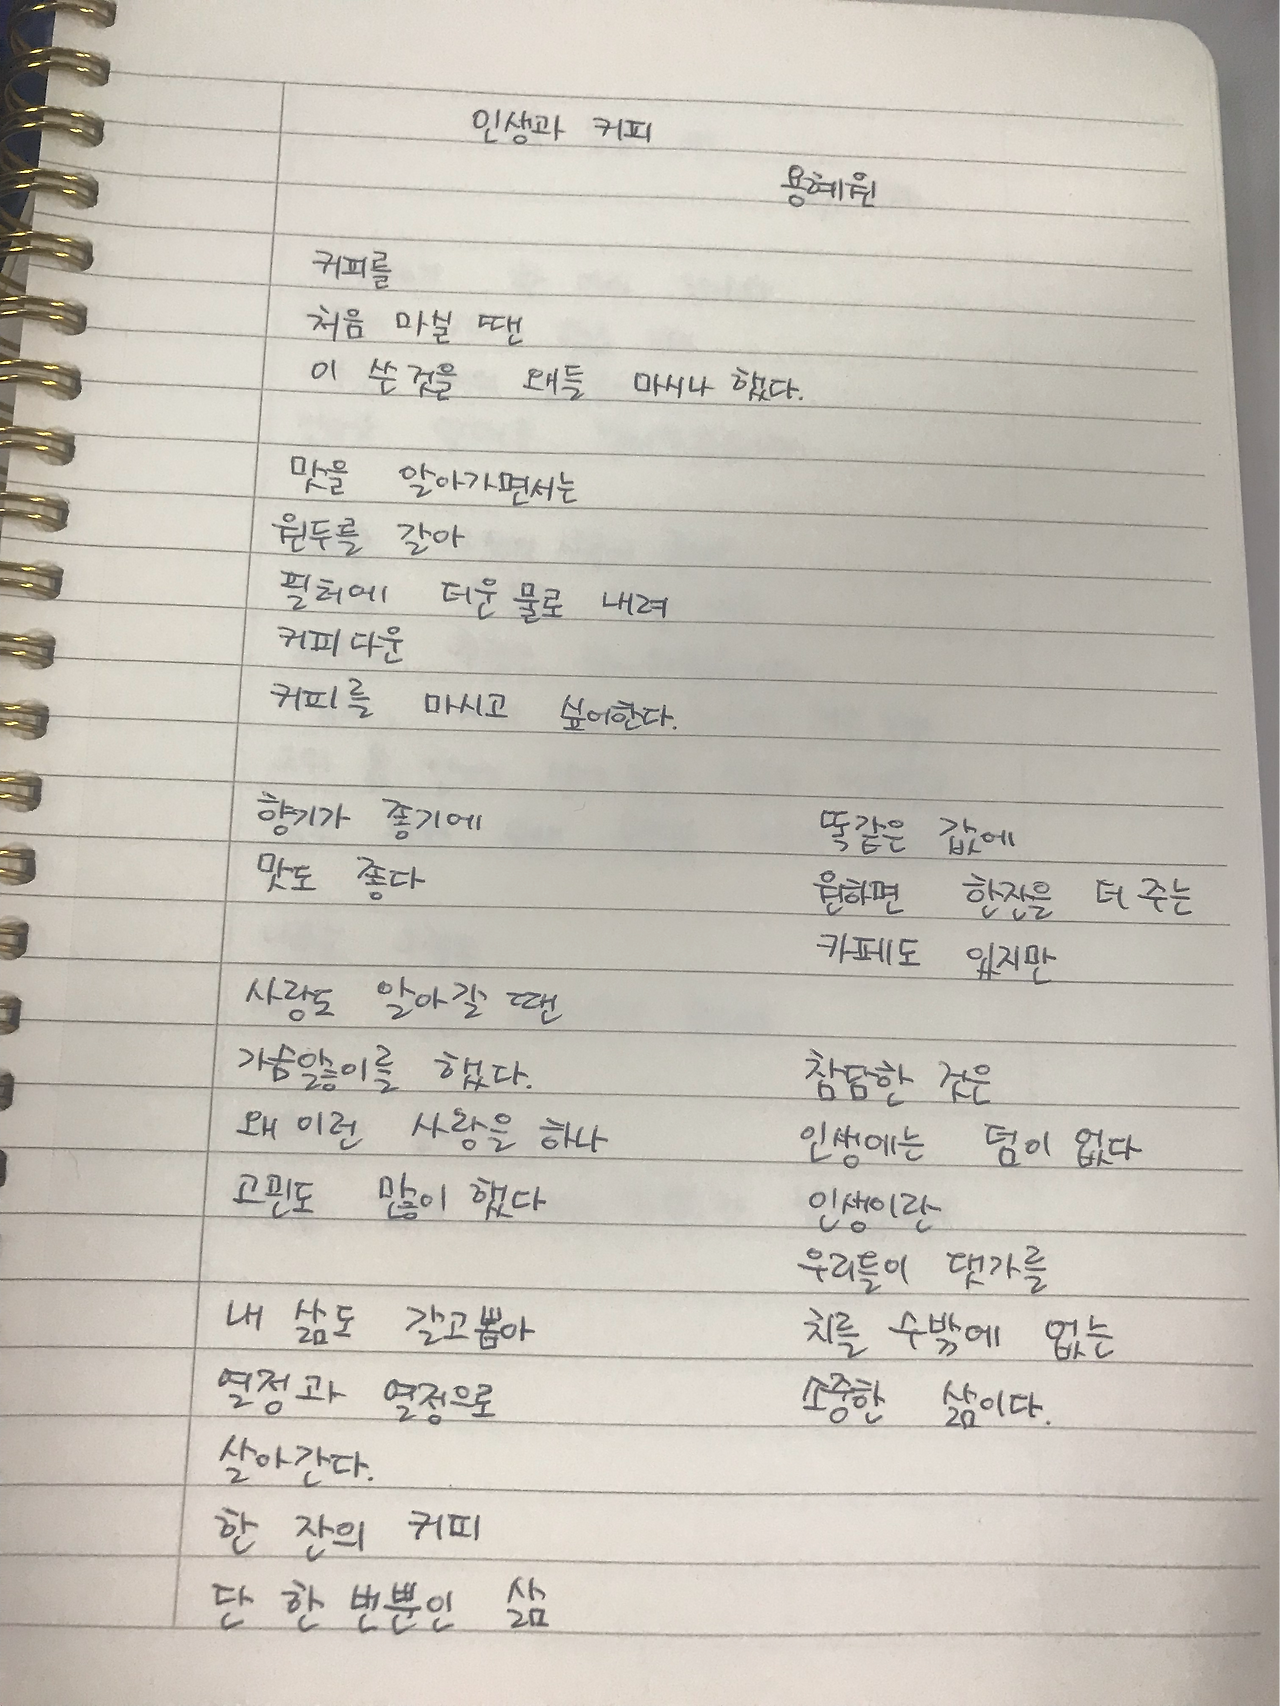 인생과 커피
용혜원
커피를
처음 마실 땐
이 쓴것을 왜들 마시나 했다.
맛을 알아가면서는
원두를 갈아
필터에 더운 물로 내려
커피다운
커피를 마시고 싶어한다.
향기가 좋기에
맛도 좋다
사랑도 알아갈 땐
가슴앓이를 했다.
왜 이런 사랑을 하나
고민도 많이 했다
내 삶도 갈고뽑아
열정과 열정으로
살아간다.
한 잔의 커피
단 한 번뿐인 삶
똑같은 값에
원하면 한잔을 더 주는
카페도 있지만
참담한 것은
인생에는 덤이 없다
인생이란
우리들이 댓가를
치를 수밖에 없는
소중한 삶이다.